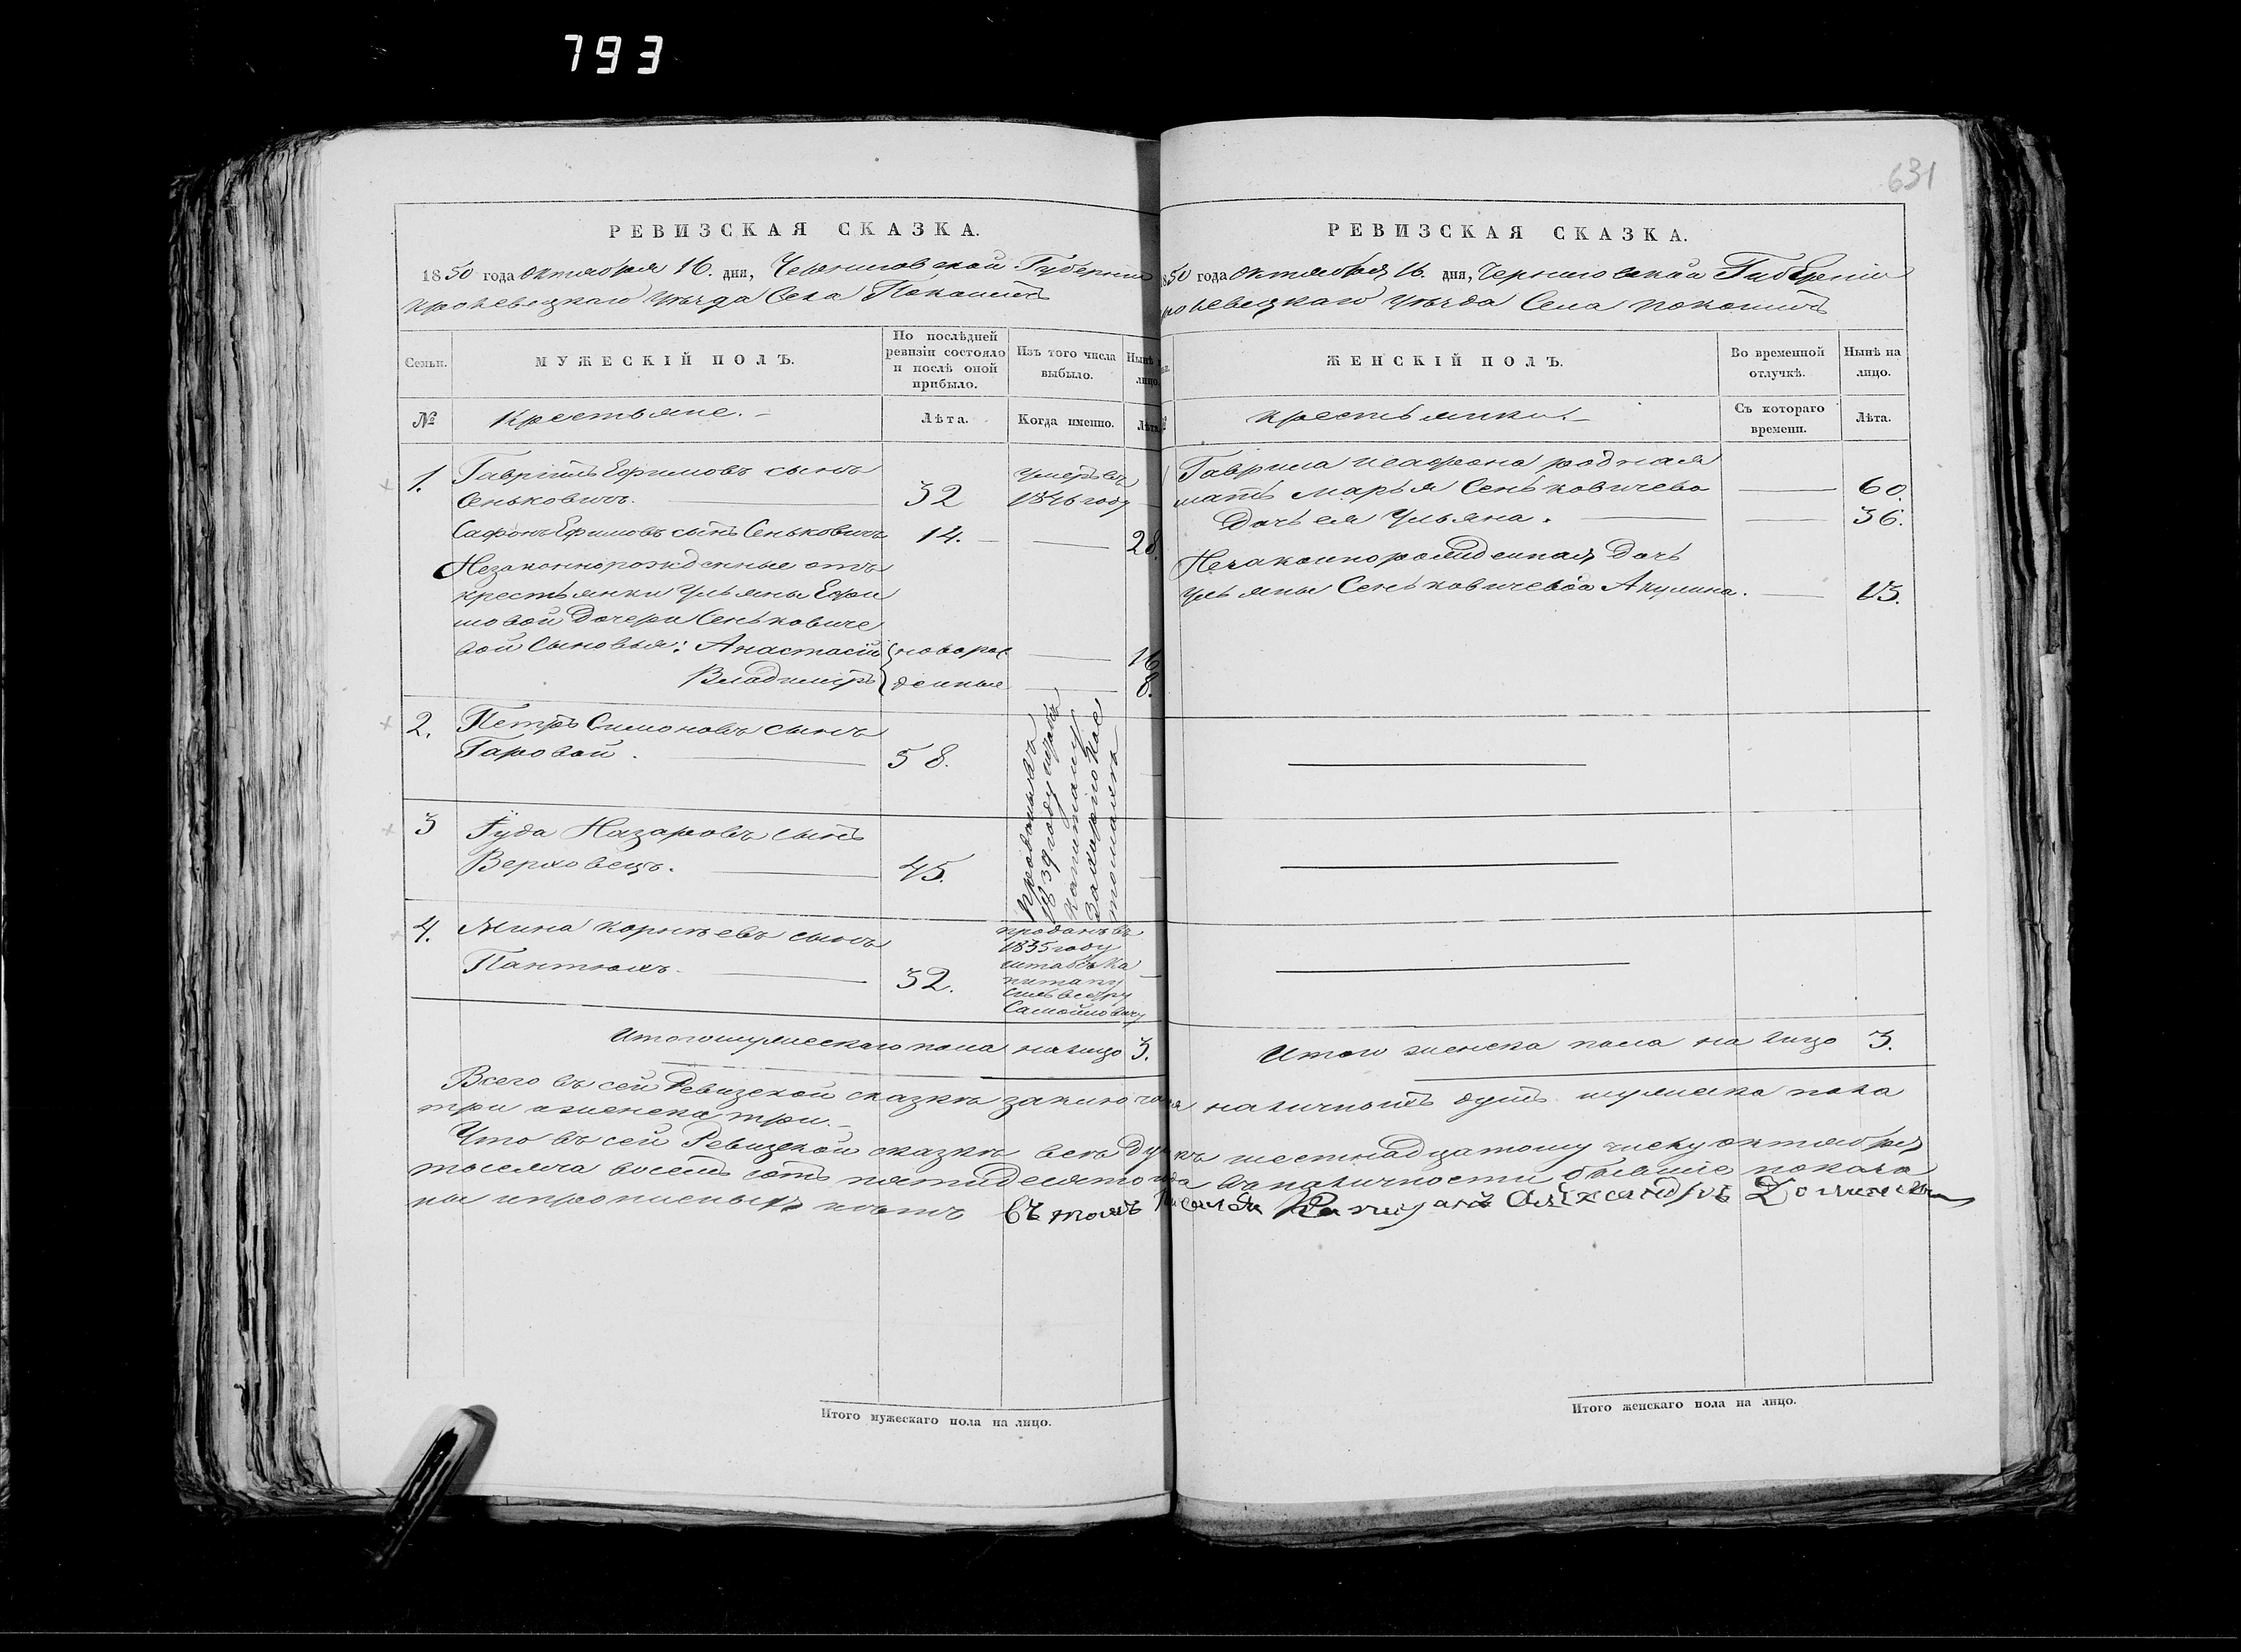 793
631
РЕВИЗСКАЯ СКАЗКА.
1850 года Октября 16. дня, Черниговской Губерніи
Кролевецкаго уѣзда Села Покошичъ
Семьи.
МУЖЕСКІЙ ПОЛЪ.
По послѣдней ревизіи состояло и послѣ оной прибыло.
Изъ того числа выбыло.
Нынѣ на лицо.
№
Крестьяне.
Лѣта.
Когда именно.
Лѣта.
1. Гаврило Ефимовъ сынъ
Сеньковичъ. 32 умеръ въ 1846 году
Сафонъ Ефимовъ сынъ Сеньковичъ 14. 28.
Незаконнорожденные отъ
крестьянки Ульяны Ефи
мовой дочери Сеньковиче
вой Сыновья: Анастасій новорож 16
Владиміръ денные 8.
2. Петръ Симоновъ сынъ
Гаровой. 58.
3 Іуда Назаровъ сынъ
Верховецъ. 45.
проданы въ
1839 году штабъ
капитану
4. Мина Корнѣевъ сынъ
Пантюхъ. 32.
проданъ въ
1835 году
штабсъ Ка
питану
Сильвестру
Самойловичу
Итого мужескаго пола на лицо 3.
РЕВИЗСКАЯ СКАЗКА.
1850 года Октября 16. дня, Черниговской Губерніи
Кролевецкаго уѣзда Села Покошичъ
ЖЕНСКІЙ ПОЛЪ.
Во временной отлучкѣ.
Нынѣ на лицо.
Крестьянки.
Съ котораго времени.
Лѣта.
Гаврила и Сафона родная
мать Марья Сеньковичева 60.
Дочь ея Ульяна. 36.
Незаконнорожденная Дочь
Ульяны Сеньковичевой Акулина. 13.
Итого женска пола на лицо 3.
Всего въ сей Ревизской сказкѣ заключается наличныхъ душъ мужеска пола
три а женска три.
Что въ сей Ревизской сказкѣ всѣ души къ шестнадцатому числу октября
тысяча восемь сотъ пятидесятого года въ наличности бывшіе показа
ны и прописныхъ нѣтъ въ томъ Александръ
Итого мужескаго пола на лицо.
Итого женскаго пола на лицо.